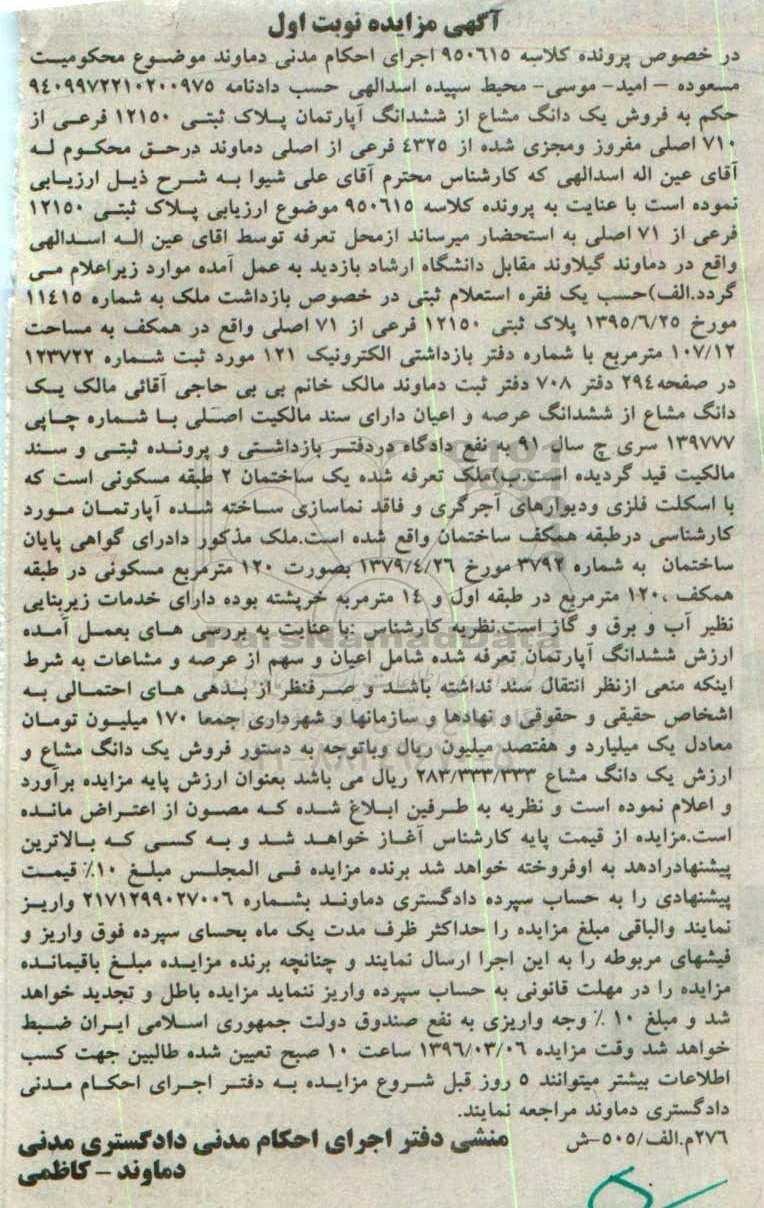 آگهی مزایده نوبت اول
در خصوص پرونده کلاسه ۹۵۰۶۱۵ اجرای احکام مدنی دماوند موضوع محکومیت
مسعوده – امید- موسی- محیط سپیده اسدالهی حسب دادنامه ۹٤۰۹۹۷۲۲۱۰۲۰۰۹۷۵
حکم به فروش یک دانگ مشاع از ششدانگ آپارتمان پلاک ثبتی ۱۲۱۵۰ فرعی از
۷۱۰ اصلی مفروز ومجزی شده از ٤۳۲۵ فرعی از اصلی دماوند درحق محکوم له
آقای عین اله اسدالهی که کارشناس محترم آقای علی شیوا به شرح ذیل ارزیابی
نموده است با عنایت به پرونده کلاسه ۹۵۰۶۱۵ موضوع ارزیابی پلاک ثبتی ۱۲۱۵۰
فرعی از ۷۱ اصلی به استحضار میرساند ازمحل تعرفه توسط اقای عین اله اسدالهی
واقع در دماوند گیلاوند مقابل دانشگاه ارشاد بازدید به عمل آمده موارد زیراعلام می
گردد.الف)حسب یک فقره استعلام ثبتی در خصوص بازداشت ملک به شماره ۱۱٤۱۵
مورخ ۱۳۹۵/۶/۲۵ پلاک ثبتی ۱۲۱۵۰ فرعی از ۷۱ اصلی واقع در همکف به مساحت
۱۰۷/۱۲ مترمربع با شماره دفتر بازداشتی الکترونیک ۱۲۱ مورد ثبت شماره ۱۲۳۷۲۲
در صفحه۲۹٤ دفتر ۷۰۸ دفتر ثبت دماوند مالک خانم بی بی حاجی آقائی مالک یک
دانگ مشاع از ششدانگ عرصه و اعیان دارای سند مالکیت اصلی با شماره چاپی
۱۳۹۷۷۷ سری ج سال ۹۱ به نفع دادگاه دردفتر بازداشتی و پرونده ثبتی و سند
مالکیت قید گردیده است.ب)ملک تعرفه شده یک ساختمان ۲ طبقه مسکونی است که
با اسکلت فلزی ودیوارهای آجرگری و فاقد نماسازی ساخته شده آپارتمان مورد
کارشناسی درطبقه همکف ساختمان واقع شده است.ملک مذکور دادرای گواهی پایان
ساختمان به شماره ۳۷۹۲ مورخ ۱۳۷۹/٤/۲۶ بصورت ۱۲۰ مترمربع مسکونی در طبقه
همکف ،۱۲۰ مترمربع در طبقه اول و ۱٤ مترمربه خرپشته بوده دارای خدمات زیربنایی
نظیر آب و برق و گاز است.نظریه کارشناس :با عنایت به بررسی های بعمل آمده
ارزش ششدانگ آپارتمان تعرفه شده شامل اعیان و سهم از عرصه و مشاعات به شرط
اینکه منعی ازنظر انتقال سند نداشته باشد و صرفنظر از بدهی های احتمالی به
اشخاص حقیقی و حقوقی و نهادها و سازمانها و شهرداری جمعا ۱۷۰ میلیون تومان
معادل یک میلیارد و هفتصد میلیون ریال وباتوجه به دستور فروش یک دانگ مشاع و
ارزش یک دانگ مشاع ۲۸۳/۳۳۳/۳۳۳ ریال می باشد بعنوان ارزش پایه مزایده برآورد
و اعلام نموده است و نظریه به طرفین ابلاغ شده که مصون از اعتراض مانده
است.مزایده از قیمت پایه کارشناس آغاز خواهد شد و به کسی که بالاترین
پیشنهادرادهد به اوفروخته خواهد شد برنده مزایده فی المجلس مبلغ ۱۰٪ قیمت
پیشنهادی را به حساب سپرده دادگستری دماوند بشماره ۲۱۷۱۲۹۹۰۲۷۰۰۶ واریز
نمایند والباقی مبلغ مزایده را حداکثر ظرف مدت یک ماه بحسای سپرده فوق واریز و
فیشهای مربوطه را به این اجرا ارسال نمایند و چنانچه برنده مزایده مبلغ باقیمانده
مزایده را در مهلت قانونی به حساب سپرده واریز ننماید مزایده باطل و تجدید خواهد
شد و مبلغ ۱۰ ٪ وجه واریزی به نفع صندوق دولت جمهوری اسلامی ایران ضبط
خواهد شد وقت مزایده ۱۳۹۶/۰۳/۰۶ ساعت ۱۰ صبح تعیین شده طالبین جهت کسب
اطلاعات بیشتر میتوانند ۵ روز قبل شروع مزایده به دفتر اجرای احکام مدنی
دادگستری دماوند مراجعه نمایند.
۲۷۶م.الف/۵۰۵-ش منشی دفتر اجرای احکام مدنی دادگستری مدنی
دماوند - کاظمی
ParsNamadData